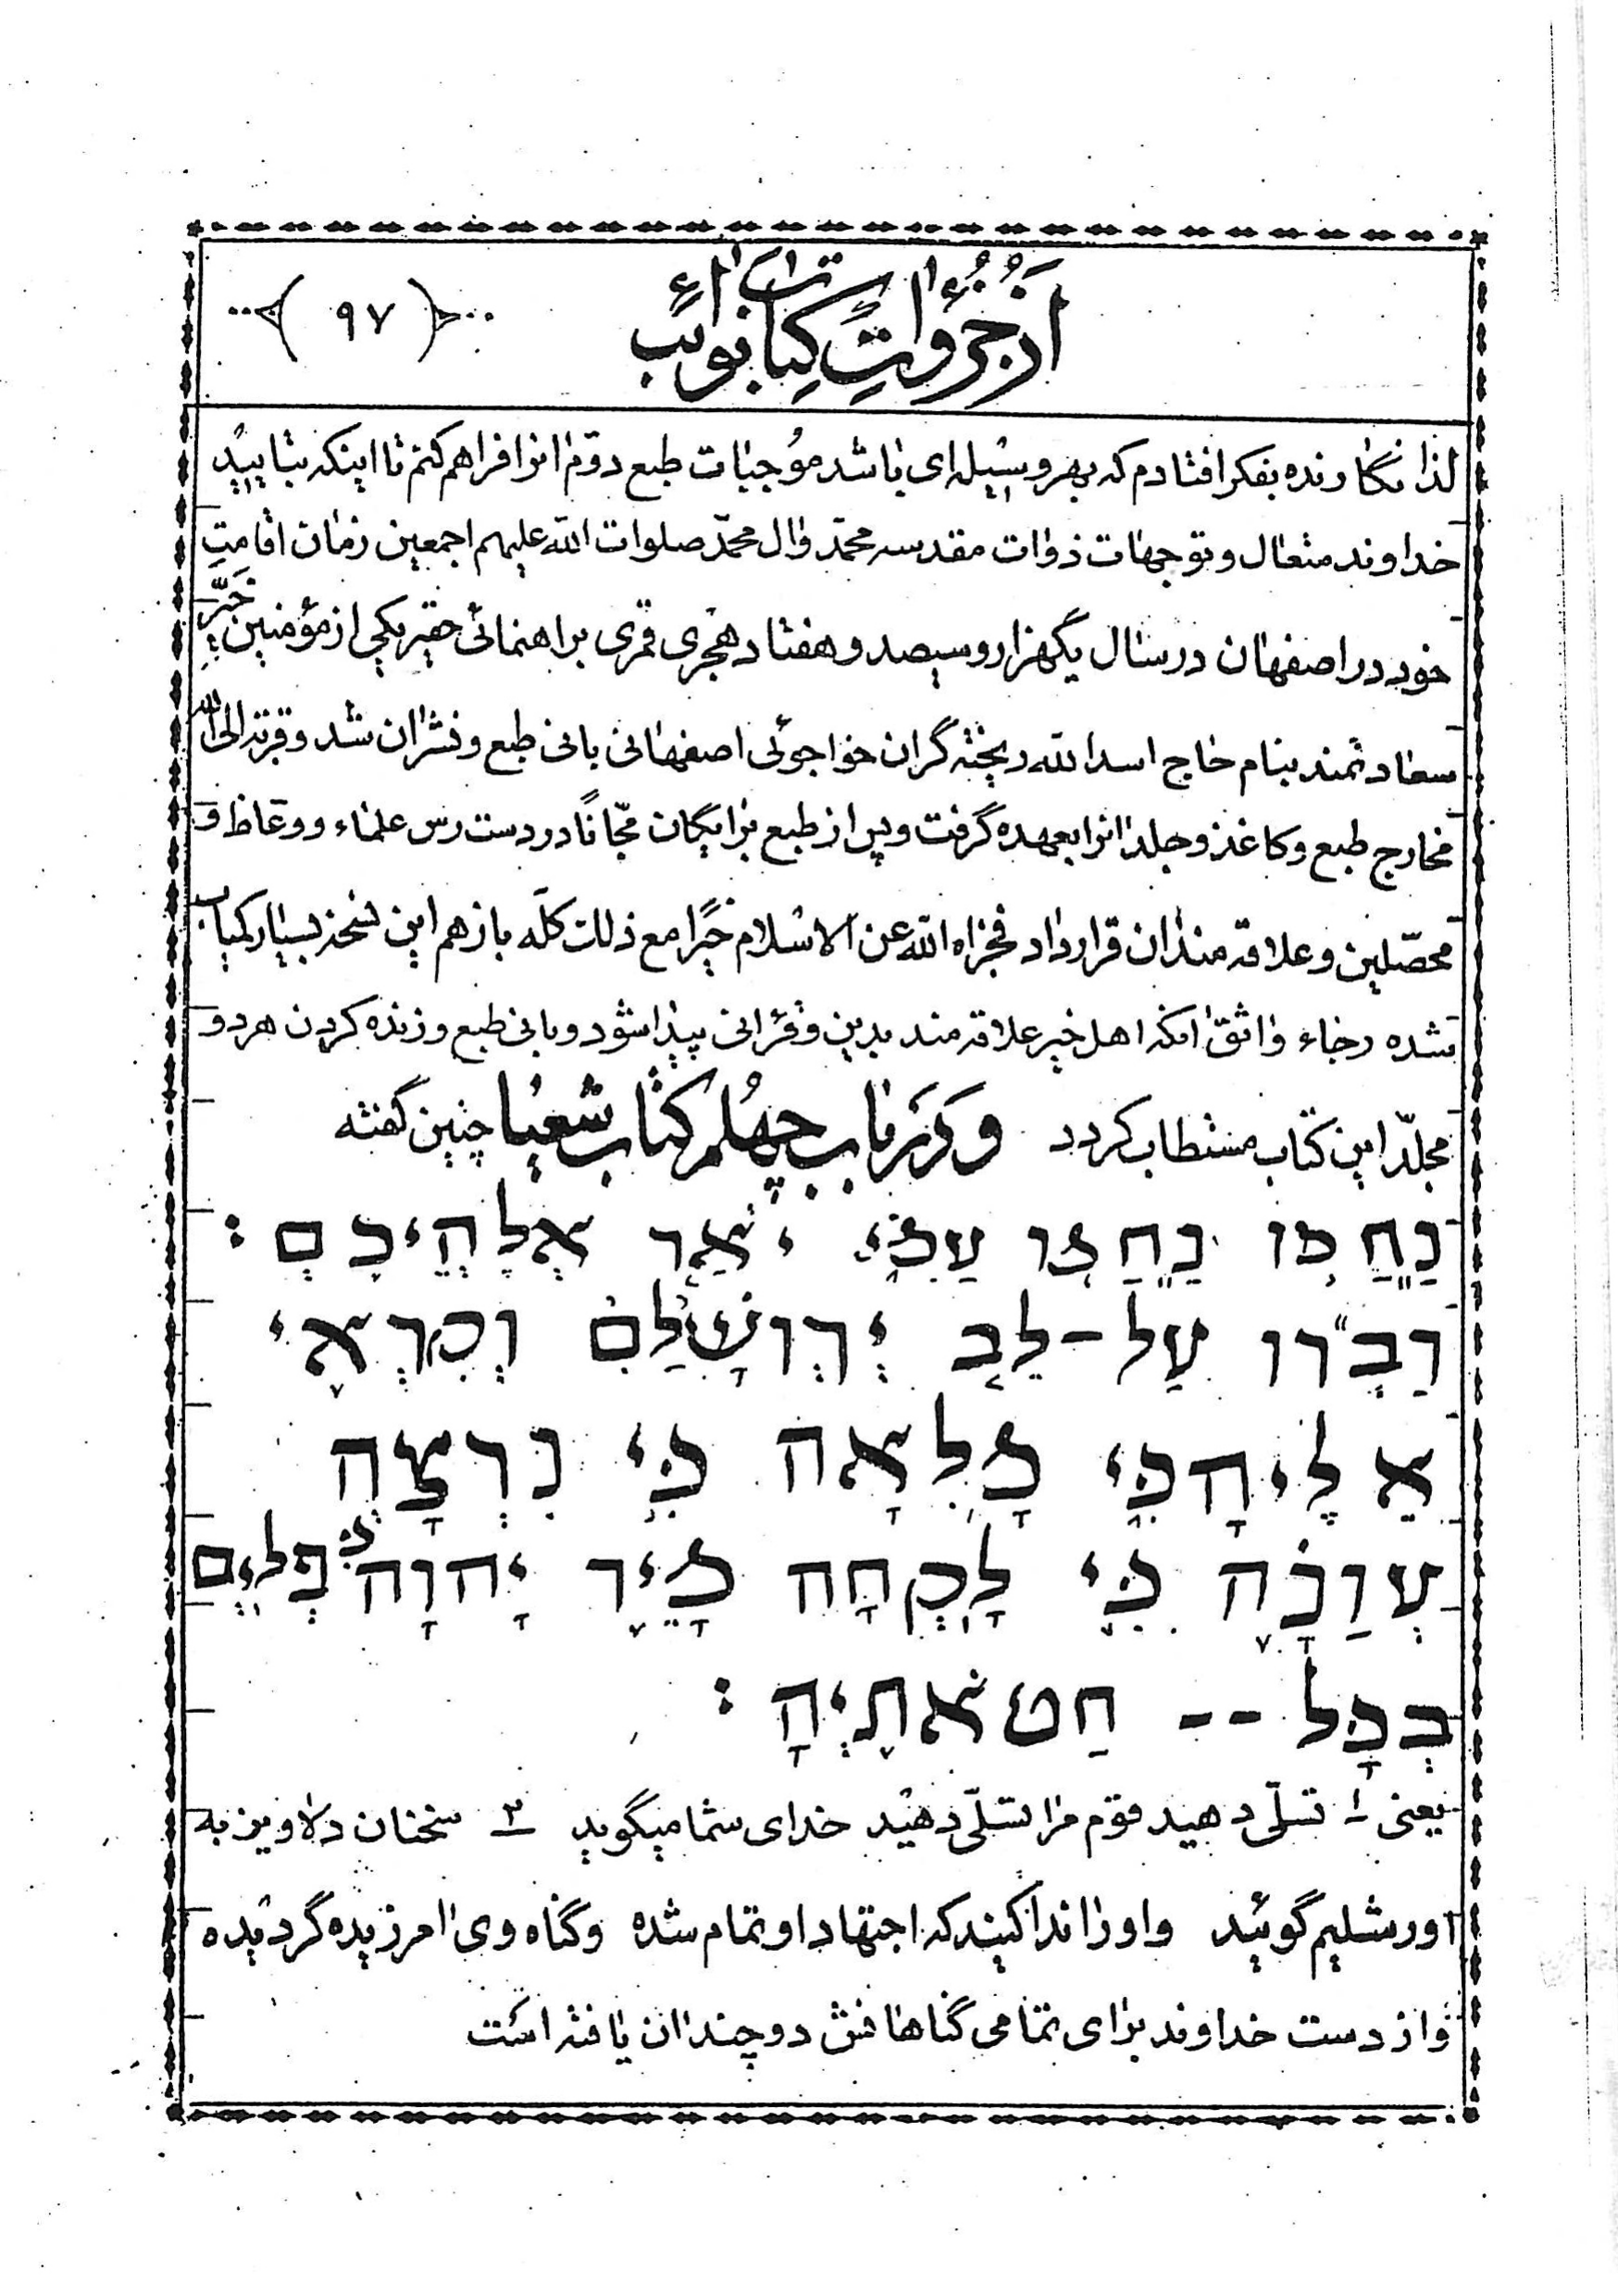 از جزوات کتاب نوائب
﴿ ۹۷ ﴾
لذا نگارنده بفکر افتادم که بهر وسیله‌ای باشد موجبات طبع دوم انرا فراهم کنم تا اینکه بتایید
خداوند متعال و توجهات ذوات مقدسه محمّد وال محمّد صلوات الله علیهم اجمعین زمان اقامت
خود در اصفهان در سال یگهزار و سیصد و هفتاد هجری قمری براهنمائی حقیر یکی از مؤمنین خیّر
سعادتمند بنام حاج اسدالله ریخته گران خواجوئی اصفهانی بانی طبع و نشر ان شد و قربة الی الله
مخارج طبع و کاغذ و جلد انرا بعهده گرفت و پس از طبع برایگان مجّاناً در دست رس علماء و وعاظ و
محصّلین و علاقه مندان قرار داد فجزاه الله عن الاسلام خیرًا مع ذلک کلّه باز هم این نسخه بسیار کمیاب
شده رجاء واثق انکه اهل خیر علاقه مند بدین و قرانی پیدا شود و بانی طبع و زنده کردن هر دو
مجلّد این کتاب مستطاب گردد و در باب چهلم کتاب شعیا چنین گفته
נַחֲמוּ נַחֲמוּ עַמִּי יאמַר אֱלֹהֵיכֶם :
דַבְּרוּ עַל-לֵב יְרוּשָׁלַםִ וְקִרְאִי
אֵלֶיהָ כִּי מָלְאָה כִּי נִרְצָה
עֲוֹנָהּ כִּי לָקְחָה מִיַּד יְהוָה כִּפְלַיִם
בְּכָל -- חַטּאתֶיהָ :
یعنی ۱ تسلّی دهید قوم مرا تسلّی دهید خدای شما میگوید ۲ سخنان دلاویز به
اورشلیم گوئید واو را ندا کنید که اجتهاد او تمام شده وگناه وی امرزیده گردیده
واز دست خداوند برای تمامی گناهانش دو چندان یافته است